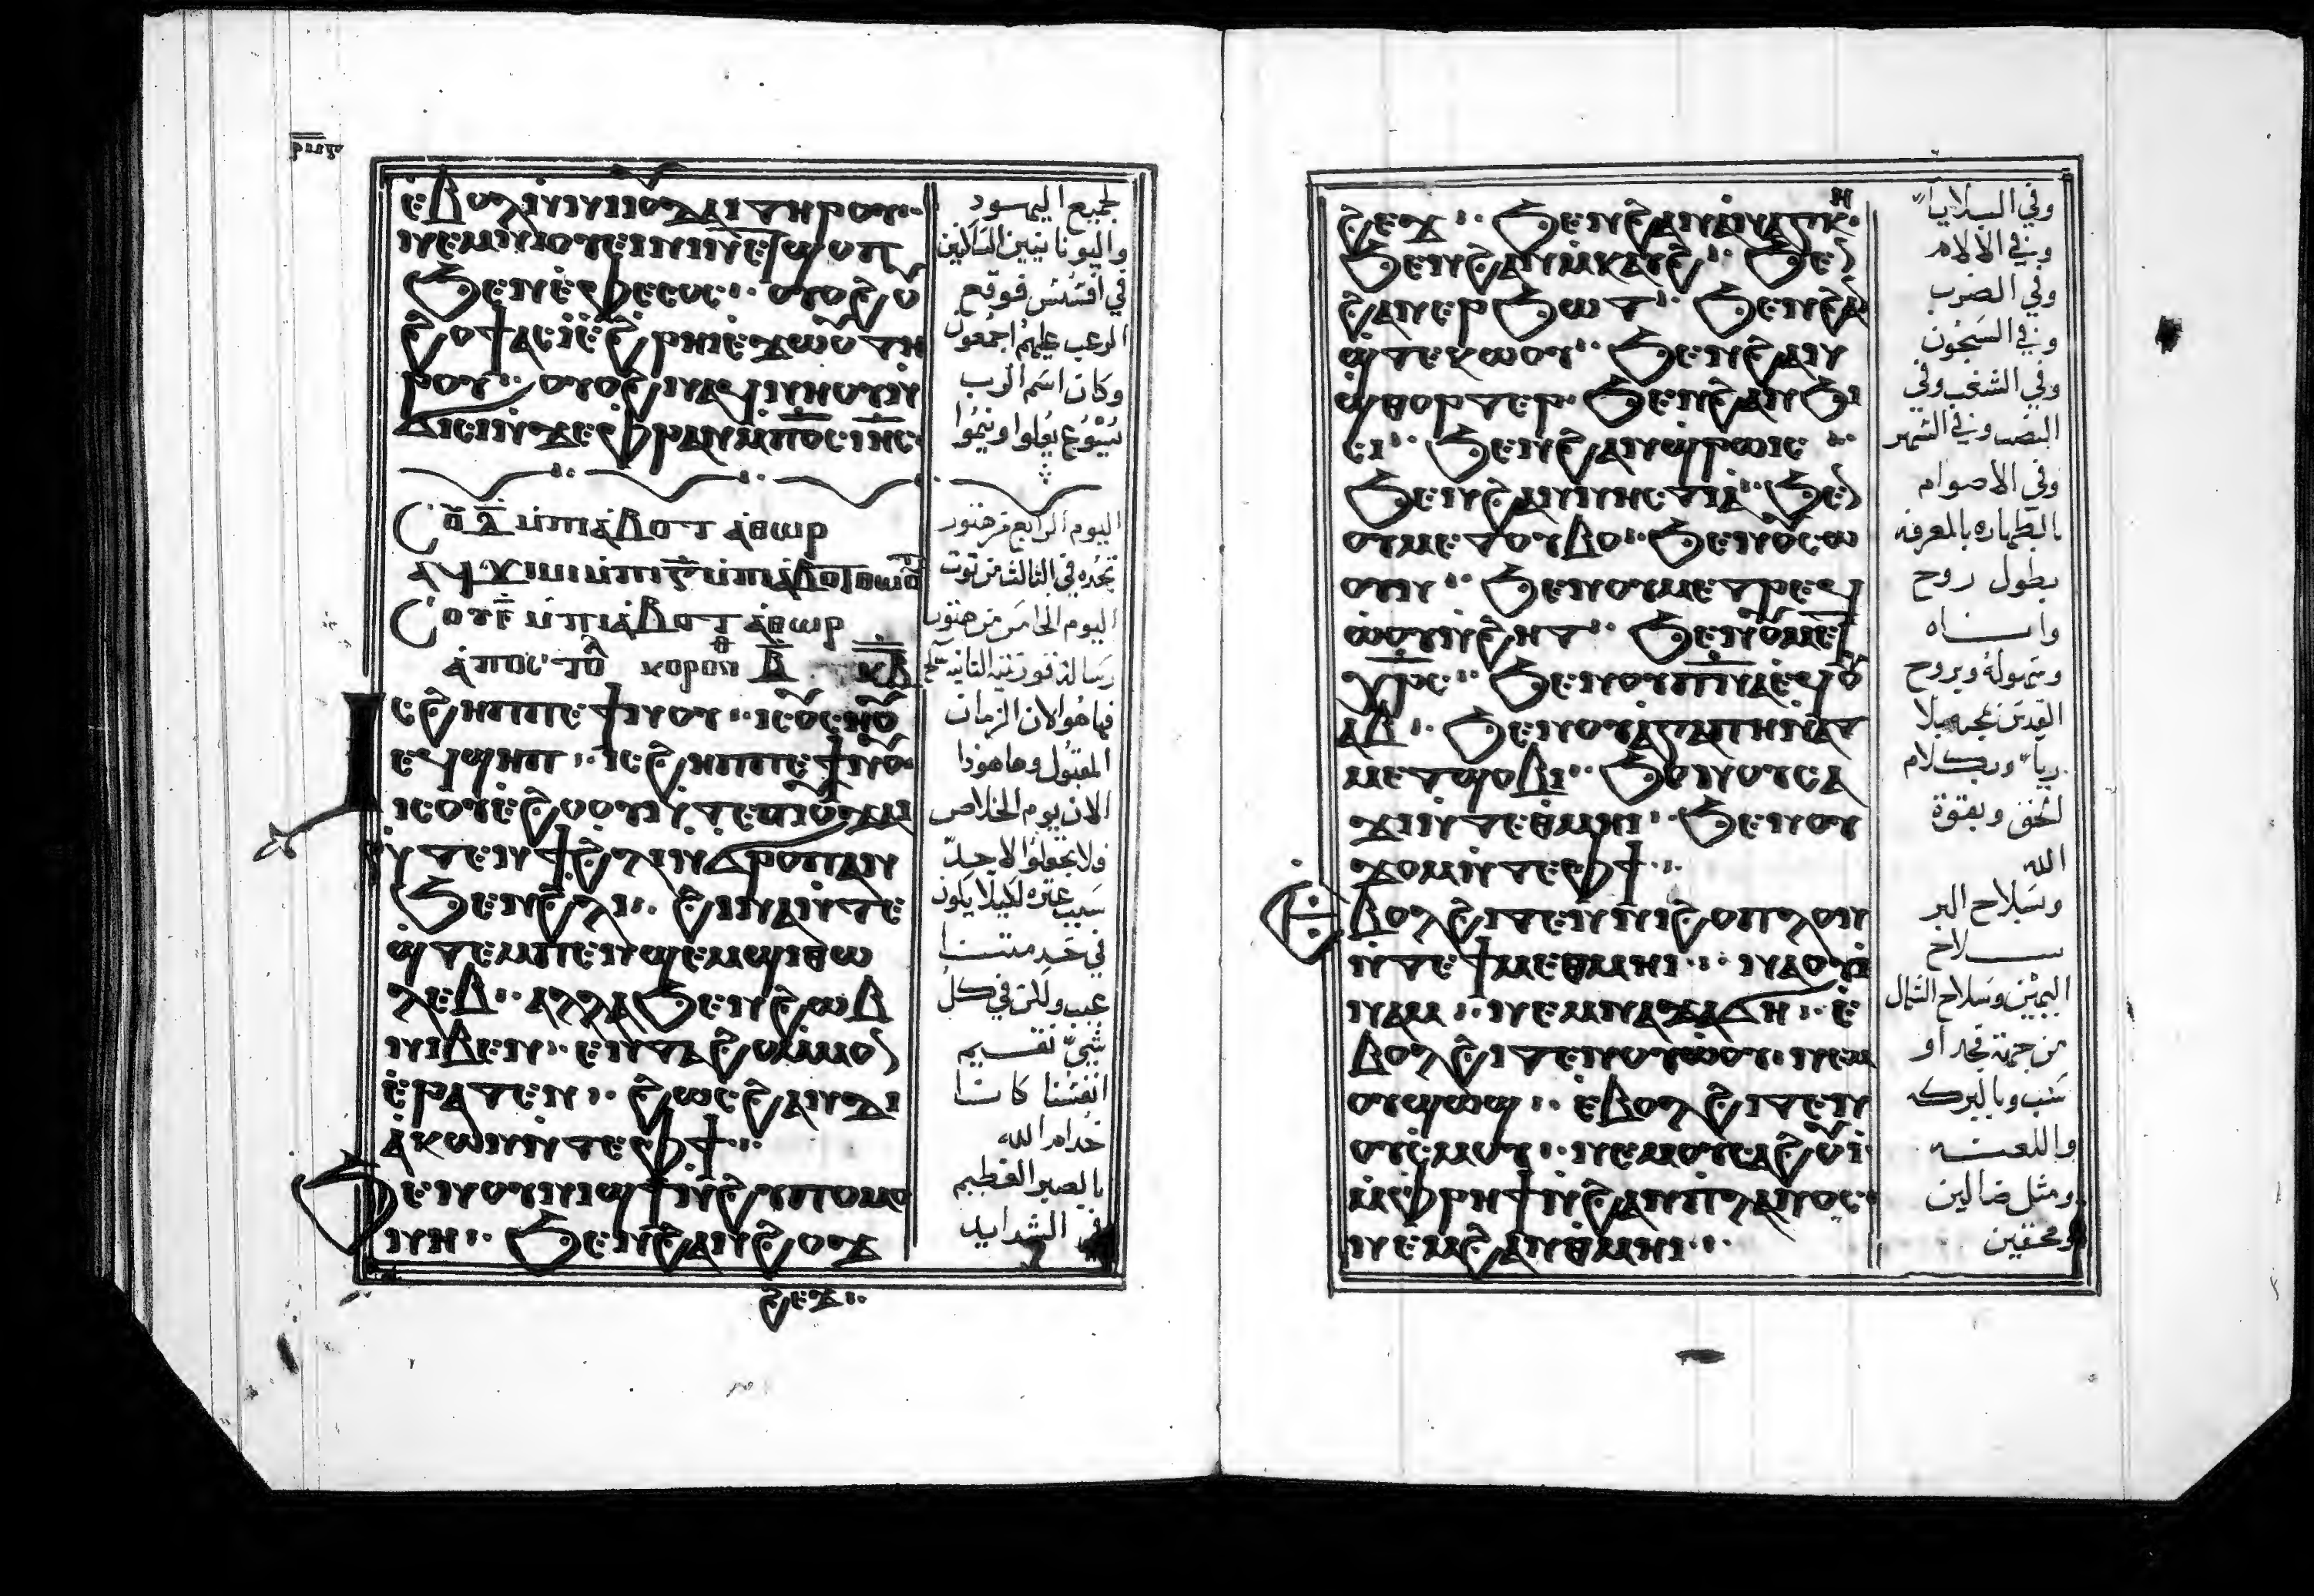 ⲉ̀ⲃⲟⲗⲛ̀ⲛⲓⲓⲟⲩⲇⲁⲓ ⲧⲏⲣⲟⲩ
ⲛⲉⲙⲛⲓⲟⲩⲉⲓⲛⲓⲛ ⲉⲧϣⲟⲡ
ϧⲉⲛⲉ̀ⲫⲉⲥⲟⲥ ⁖ ⲟⲩⲟϩ ⲟⲩ
ϩⲟϯ ⲁⲥⲓ̀ ⲉ̀ϩⲣⲏⲓ ⲉ̀ϫⲱⲟⲩ ⲧⲏ
ⲣⲟⲩ ⁖ ⲟⲩⲟϩ
ϭⲓⲥⲓ ⲛ̀ϫⲉⲫⲣⲁⲛ ⲙ̀ⲡⲟ̅ⲥ̅ ⲓⲏ̅ⲥ̅
ⲥⲟⲩ ⲇ̅ ⲙ̀ⲡⲓⲁ̀ⲃⲟⲧ ⲁ̀ⲑⲱⲣ
ⲥⲟⲩ ⲉ̅ ⲙ̀ⲡⲓⲁ̀ⲃⲟⲧ ⲁ̀ⲑⲱⲣ
ⲁ̀ⲡⲟⲥⲧⲟⲗ ⲕⲟⲣⲟⲛⲑ ⲃ̅
ⲓⲥϩⲏⲡⲡⲉ ϯⲛⲟⲩ ⁖ ⲓⲥ ⲟⲩⲥⲏⲟⲩ
ⲉϥϣⲏⲡ ⁖ ⲓⲥϩⲏⲡⲡⲉ ϯⲛⲟⲩ
ⲓⲥ ⲟⲩⲉ̀ϩⲟⲟⲩ ⲛ̀ⲧⲉⲡⲓⲟⲩϫⲁⲓ
ⲛ̀ⲧⲉⲛϯ ϩ̀ⲗⲓ ⲛ̀ϭⲣⲟⲡ ⲁⲛ
ϧⲉⲛϩ̀ⲗⲓ ⁖ ϩⲓⲛⲁ ⲛ̀ⲧⲉ
ϣ̀ⲧⲉⲙⲡⲉⲛϣⲉⲙϣⲓ ⲑⲱ
ⲗⲉⲃ ⁖ ⲁⲗⲗⲁ ϧⲉⲛϩⲱⲃ
ⲛⲓⲃⲉⲛ ⁖ ⲉⲛⲧⲁϩⲟ ⲙ̀ⲙⲟⲛ
ⲉ̀ⲣⲁⲧⲉⲛ ⁖ ϩⲱⲥ ϩⲁⲛⲇⲓ
ⲁ̀ⲕⲱⲛ ⲛ̀ⲧⲉⲫϯ ⁖
ϧⲉⲛⲟⲩⲛⲓϣϯ ⲛ̀ϩⲩⲡⲟⲙⲟ
ⲛⲏ ⁖ ϧⲉⲛϩⲁⲛϩⲟϫ
ϩⲉϫ ⁖
لجميع اليهود
واليونانيين الساكنين
في افسس فوقع
الرعب عليهم اجمعون
وكان اسم الرب
يسوع
اليوم الرابع من هتور
تجده في الثالث من توت
اليوم الخامس من هتور
رسالة قورنتيه الثانية
فها هوا لان الزمان
المقبول وها هوذا
الان يوم الخلاص
ولا تجعلوا لاحد
سبب عثره لكيلا يكون
في خدمتنا
عيب ولكن في كل
شي نقيم
انفسنا كاننا
خدام الله
بالصبر العظيم
في الشدايد
ϩⲉϫ ⁖ ϧⲉⲛϩⲁⲛⲁ̀ⲛⲁⲅⲕⲏ
ϧⲉⲛϩⲁⲛⲙ̀ⲕⲁⲩϩ ⁖ ϧⲉⲛ
ϩⲁⲛⲉⲣϧⲱⲧ ⁖ ϧⲉⲛϩⲁⲛ
ϣ̀ⲧⲉⲕⲱⲟⲩ ⁖ ϧⲉⲛϩⲁⲛ
ϣ̀ⲑⲟⲣⲧⲉⲣ ϧⲉⲛϩⲁⲛϧⲓ
ⲥⲓ ⁖ ϧⲉⲛϩⲁⲛϣⲣⲱⲓⲥ ⁖
ϧⲉⲛϩⲁⲛⲛⲏⲥⲧⲓⲁ̀ ⁖ ϧⲉⲛ
ⲟⲩⲙⲉⲧⲧⲟⲩⲃⲟ ⁖ ϧⲉⲛⲟⲩⲥⲱ
ⲟⲩⲛ ⁖ ϧⲉⲛⲟⲩⲙⲉⲧⲣⲉϥ
ⲱ̀ⲟⲩⲛ̀ϩⲏⲧ ⁖ ϧⲉⲛⲟⲩⲙⲉⲧ
ⲭ̅ⲣ̅ⲥ̅ ⁖ ϧⲉⲛⲟⲩⲡ̅ⲛ̅ⲁ̅ ⲉϥⲟⲩ
ⲁⲃ ⁖ ϧⲉⲛⲟⲩⲁⲅⲁⲡⲏ ⲛ̀ⲁⲧ
ⲙⲉⲧϣⲟⲃⲓ ⁖ ϧⲉⲛⲟⲩⲥⲁ
ϫⲓ ⲛ̀ⲧⲉⲑⲙⲏⲓ ⁖ ϧⲉⲛⲟⲩ
ϫⲟⲙ ⲛ̀ⲧⲉⲫϯ ⁖
ⲉ̀ⲃⲟⲗϩⲓⲧⲉⲛⲛⲓϩⲟⲡⲗⲟⲛ
ⲛ̀ⲧⲉϯⲙⲉⲑⲙⲏⲓ ⁖ ⲛⲁⲟⲩⲓ̀
ⲛⲁⲙ ⁖ ⲛⲉⲙⲛⲁϫⲁϭⲏ ⁖ ⲉ̀
ⲃⲟⲗϩⲓⲧⲉⲛⲟⲩⲱ̀ⲟⲩ ⲛⲉⲙ
ⲟⲩϣⲱϣ ⁖ ⲉ̀ⲃⲟⲗϩⲓⲧⲉⲛ
ⲟⲩⲥ̀ⲙⲟⲩ ⁖ ⲛⲉⲙⲟⲩⲥⲁϩⲟⲩⲓ̀
ⲙ̀ⲫⲣⲏϯ ⲛ̀ϩⲁⲛⲡⲗⲁⲛⲟⲥ
ⲛⲉⲙϩⲁⲛⲑⲙⲏⲓ ⁖
وفي البلايا
وفي الالام
وفي الضرب
وفي السجون
وفي الشغب وفي
النصب وفي السهر
وفي الاصوام
بالطهاره بالمعرفه
بطول روح
وسهوله وبروح
القدس بمحبه بلا
ريا وبكلام
الحق وبقوة
الله
وبسلاح البر
سلاح
اليمين وسلاح الشمال
من جهة مجد او
سب وبالبركه
واللعنه
ومثل ضالين
ومحقين